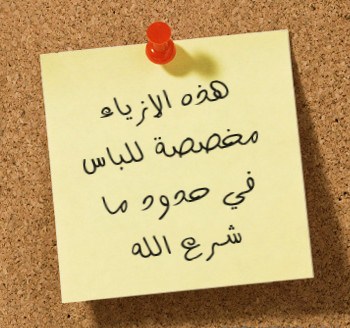 هذه الإزياء
مخصصة للباس
في حدود ما
شرع الله